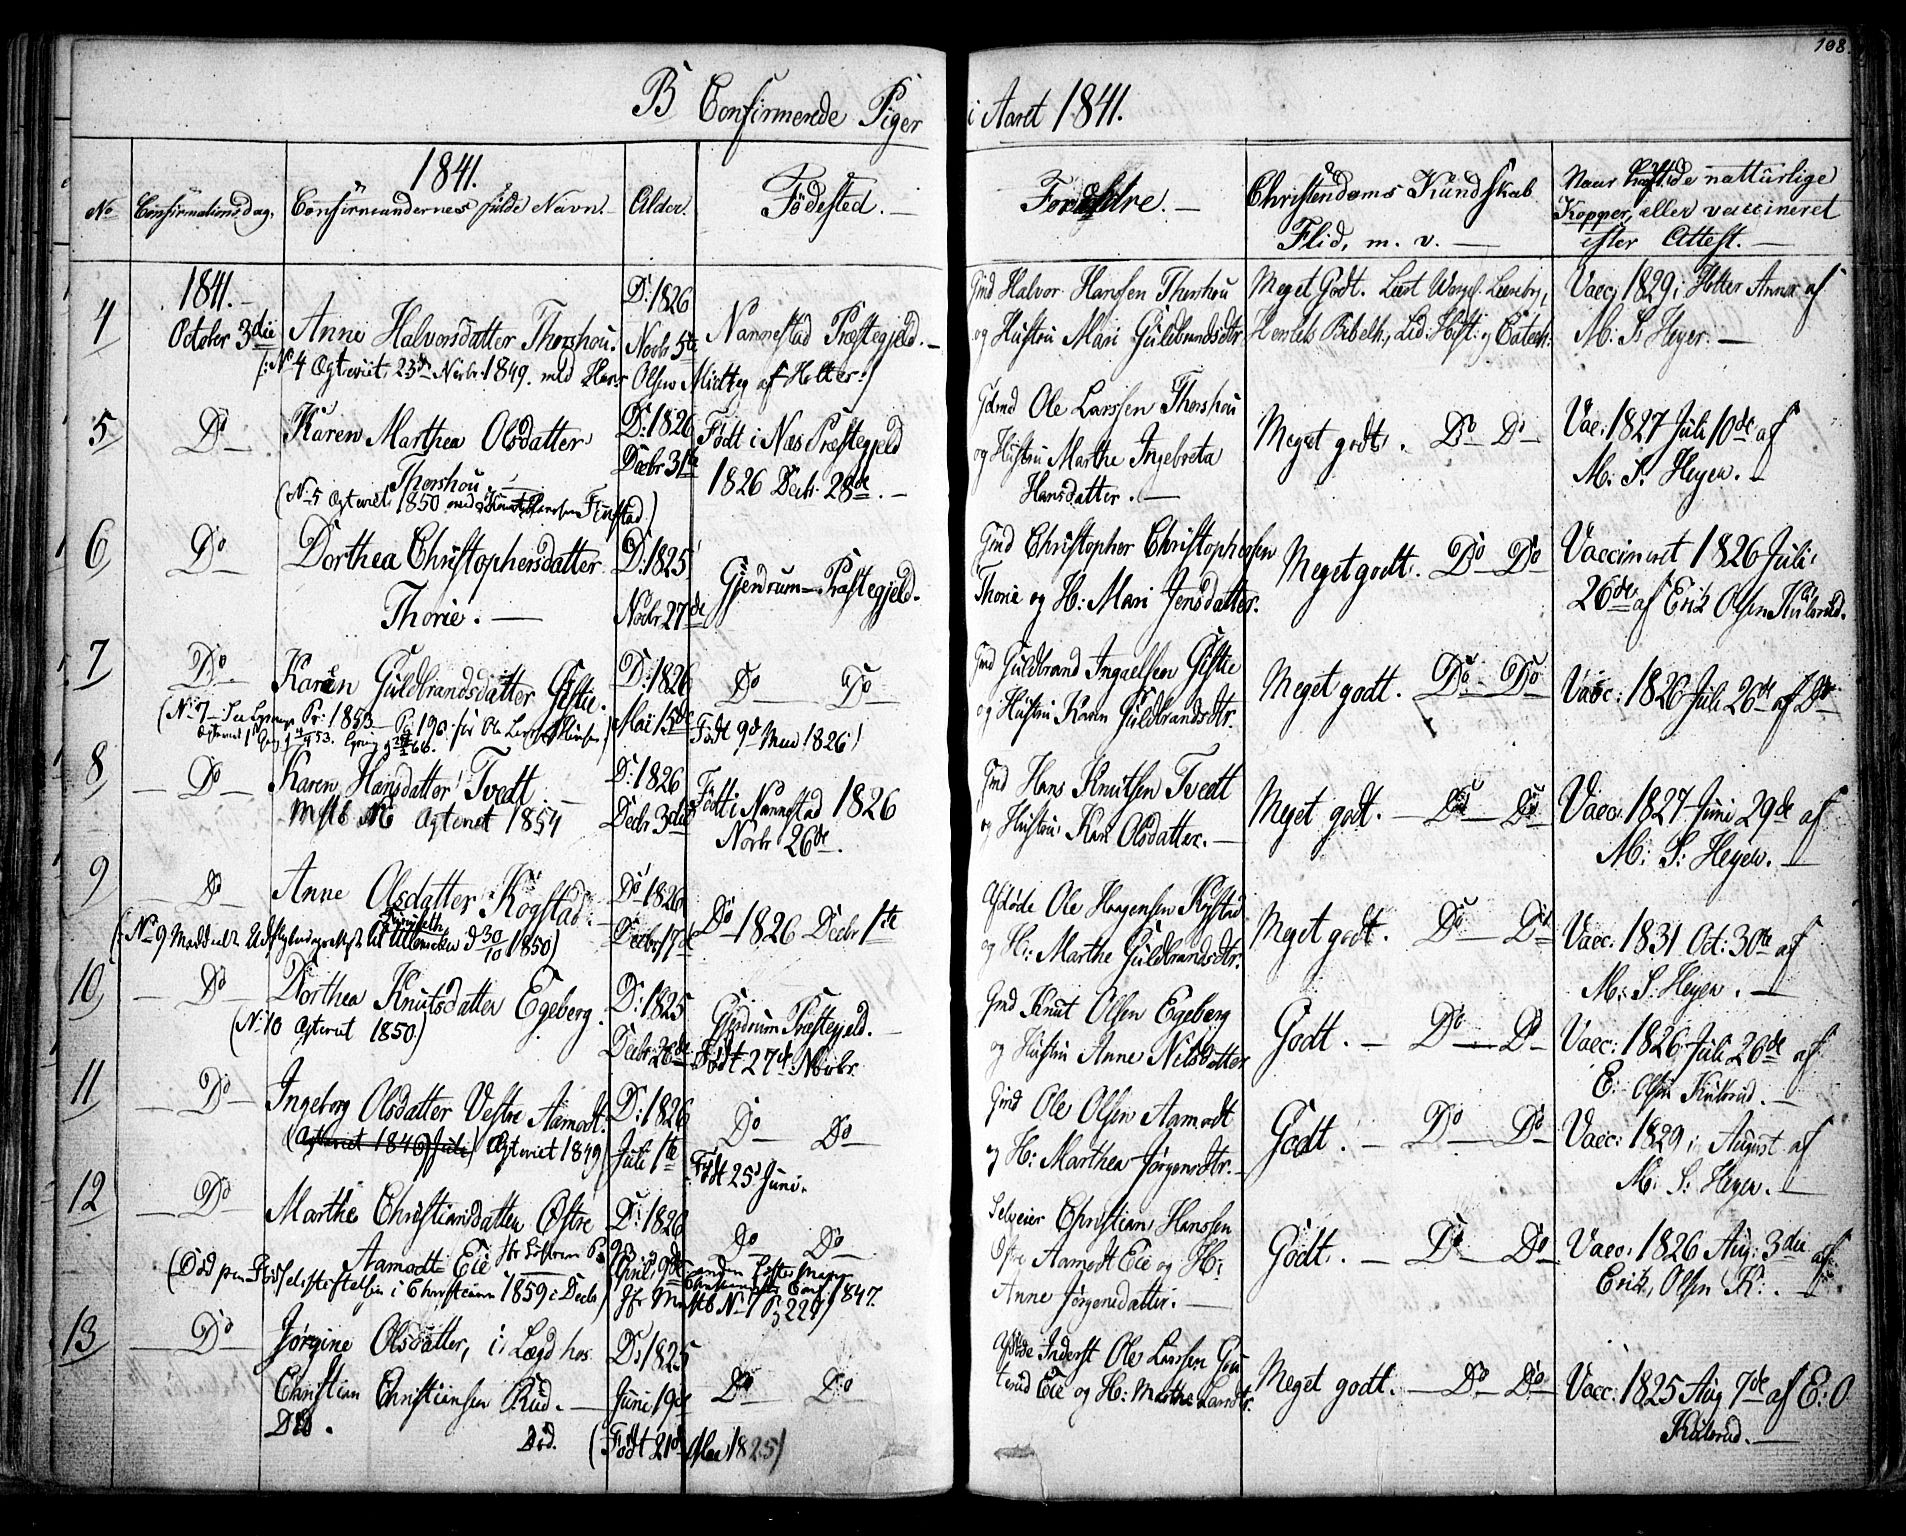 108.
B Confirmerede Piger i Aaret 1841.
1841.
No Confirmationsdag. Confirmandernes fulde Navn. Alder. Fødested. Forældre. Christendoms Kundskab Naar havde nattürlige
Flid, m. v. Kopper, eller vaccineret
efter Attest.
1841.
4 October 3die Anne Halvorsdatter Thorshou. D: 1826 Novbr 5te Nannestad Præstegjeld.
(: No 4 Ægteviet 23de Novbr 1849. med Hans Olsen Midteg af Holter:)
Gmd Halvor Hanssen Thorshou
og Hustru Mari Guldbrandsdtr
Meget Godt. Læst
Vacc, 1829 i Holter Annex af
M: S: Heyer.
5 Do Karen Marthea Olsdatter D: 1826 Født i Næs Præstegjeld
Thorshou. Decbr 31te 1826 Decbr. 28de.
(No 5 Ægteviet 1850 med
Gdmd Ole Larssen Thorshou
og Hustru Marthe Ingebreta
Hansdatter.
Meget godt. Do Do
Vac: 1827 Juli 10de af
M: S: Heyer.
6 Do Dorthea Christophersdatter D: 1825 Gjerdrum Præstegjeld.
Thorie. Novbr 27de
Gmd Christopher Christophersen
Thorie og H: Mari Jensdatter.
Meget godt. Do Do
Vaccineret 1826 Juli
26de af Erik Olsen Kulsrud.
7 Do Karen Guldbrandsdatter Gistie. D: 1826 Do Do
Mai 15de Født 9d Mai 1826
(No 7 1853 Pg 190
Gmd Guldbrand Ingaelsen Gistie
og Hustru Karen Guldbrandsdtr.
Meget godt. Do Do
Vacc: 1826 Juli 26de af Do
8 Do Karen Hansdatter Tvedt D: 1826 Født i Nannestad 1826
Ægteviet 1854 Decbr 3die Novbr 26de.
Gmd Hans Knutsen Tvedt
og Hustru Kari Olsdatter.
Meget godt. Do Do
Vacc. 1827 Juni 29de af
M: S: Heyer.
9 Do Anne Olsdatter Kogstad. Do 1826 Do 1826 Decbr 1te
Decbr 17de
(: No 9 Meddeelt Udflytningsattest til Ullensaker d 30/10 1850)
Afdøde Ole Haagensen Kogstad
og H: Marthe Guldbrandsdtr.
Meget godt. Do Do
Vacc: 1831 Oct: 30te af
M: S: Heyer.
10 Do Dorthea Knutsdatter Egeberg. D: 1825 Gjerdrum Præstegjeld.
(No 10 Ægteviet 1850) Decbr 26de Født 27de Novbr.
Gmd Knut Olsen Egeberg
og Hustru Anne Nilsdatter
Godt. Do Do
Vacc: 1826 Juli 26de af
E: Olsen Kulsrud.
11 Do Ingeborg Olsdatter Vestre Aamodt. D: 1826 Do Do
(Ægteviet 1846 Juli) Ægteviet 1849) Juli 1te Født 25d Juni.
Gmd Ole Olsen Aamodt
og H: Marthea Jørgensdtr.
Godt. Do Do
Vacc: 1829 i August af
M: S: Heyer.
12 Do Marthe Christiansdatter Østre D: 1826 Do Do
Aamodt Eie April 9de
(Død paa Fødselsstiftelsen i Christiania 1859 i Decbr) 1847.
Selveier Christian Hanssen
Østre Aamodt Eie og H:
Anne Jørgensdatter.
Godt. Do Do
Vacc: 1826 Aug: 3die af
Erik Olsen K:
13 Do Jørgine Olsdatter, i Lægd hos D: 1825 Do Do
Christian Christiansen Rud. Juni 19de
Død. Død. (Født 21d Mai 1825)
Afdøde Inderst Ole Larssen
Eie og H: Marthe Larsdtr.
Meget godt. Do Do
Vacc: 1825 Aug 7de af E: O
Kulsrud.